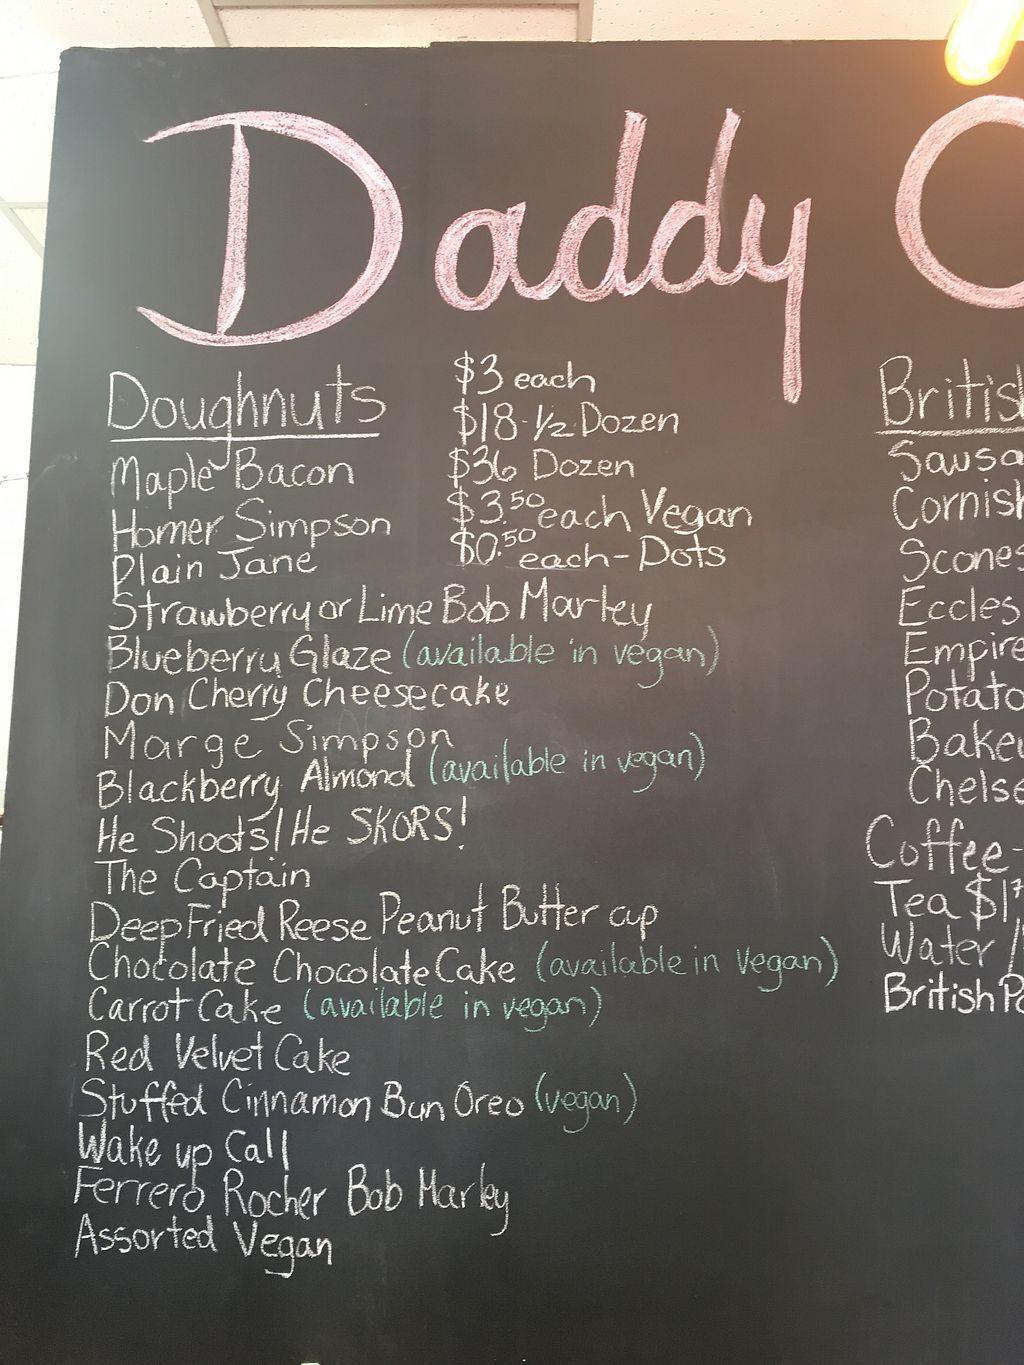 Daddy
Doughnuts
$3 each
$18-1/2 Dozen
$36 Dozen
$3.50 each Vegan
$0.50 each - Dots
Maple Bacon
Homer Simpson
Plain Jane
Strawberry or Lime Bob Marley
Blueberry Glaze (available in vegan)
Don Cherry Cheesecake
Marge Simpson
Blackberry Almond (available in vegan)
He Shoots/He SKORS!
The Captain
Deep Fried Reese Peanut Butter cup
Chocolate Chocolate Cake (available in Vegan)
Carrot Cake (available in vegan)
Red Velvet Cake
Stuffed Cinnamon Bun Oreo (vegan)
Wake up Call
Ferrero Rocher Bob Marley
Assorted Vegan
Cornish
Scones
Eccles
Empire
Potato
Coffee-
Tea $1
Water /
British